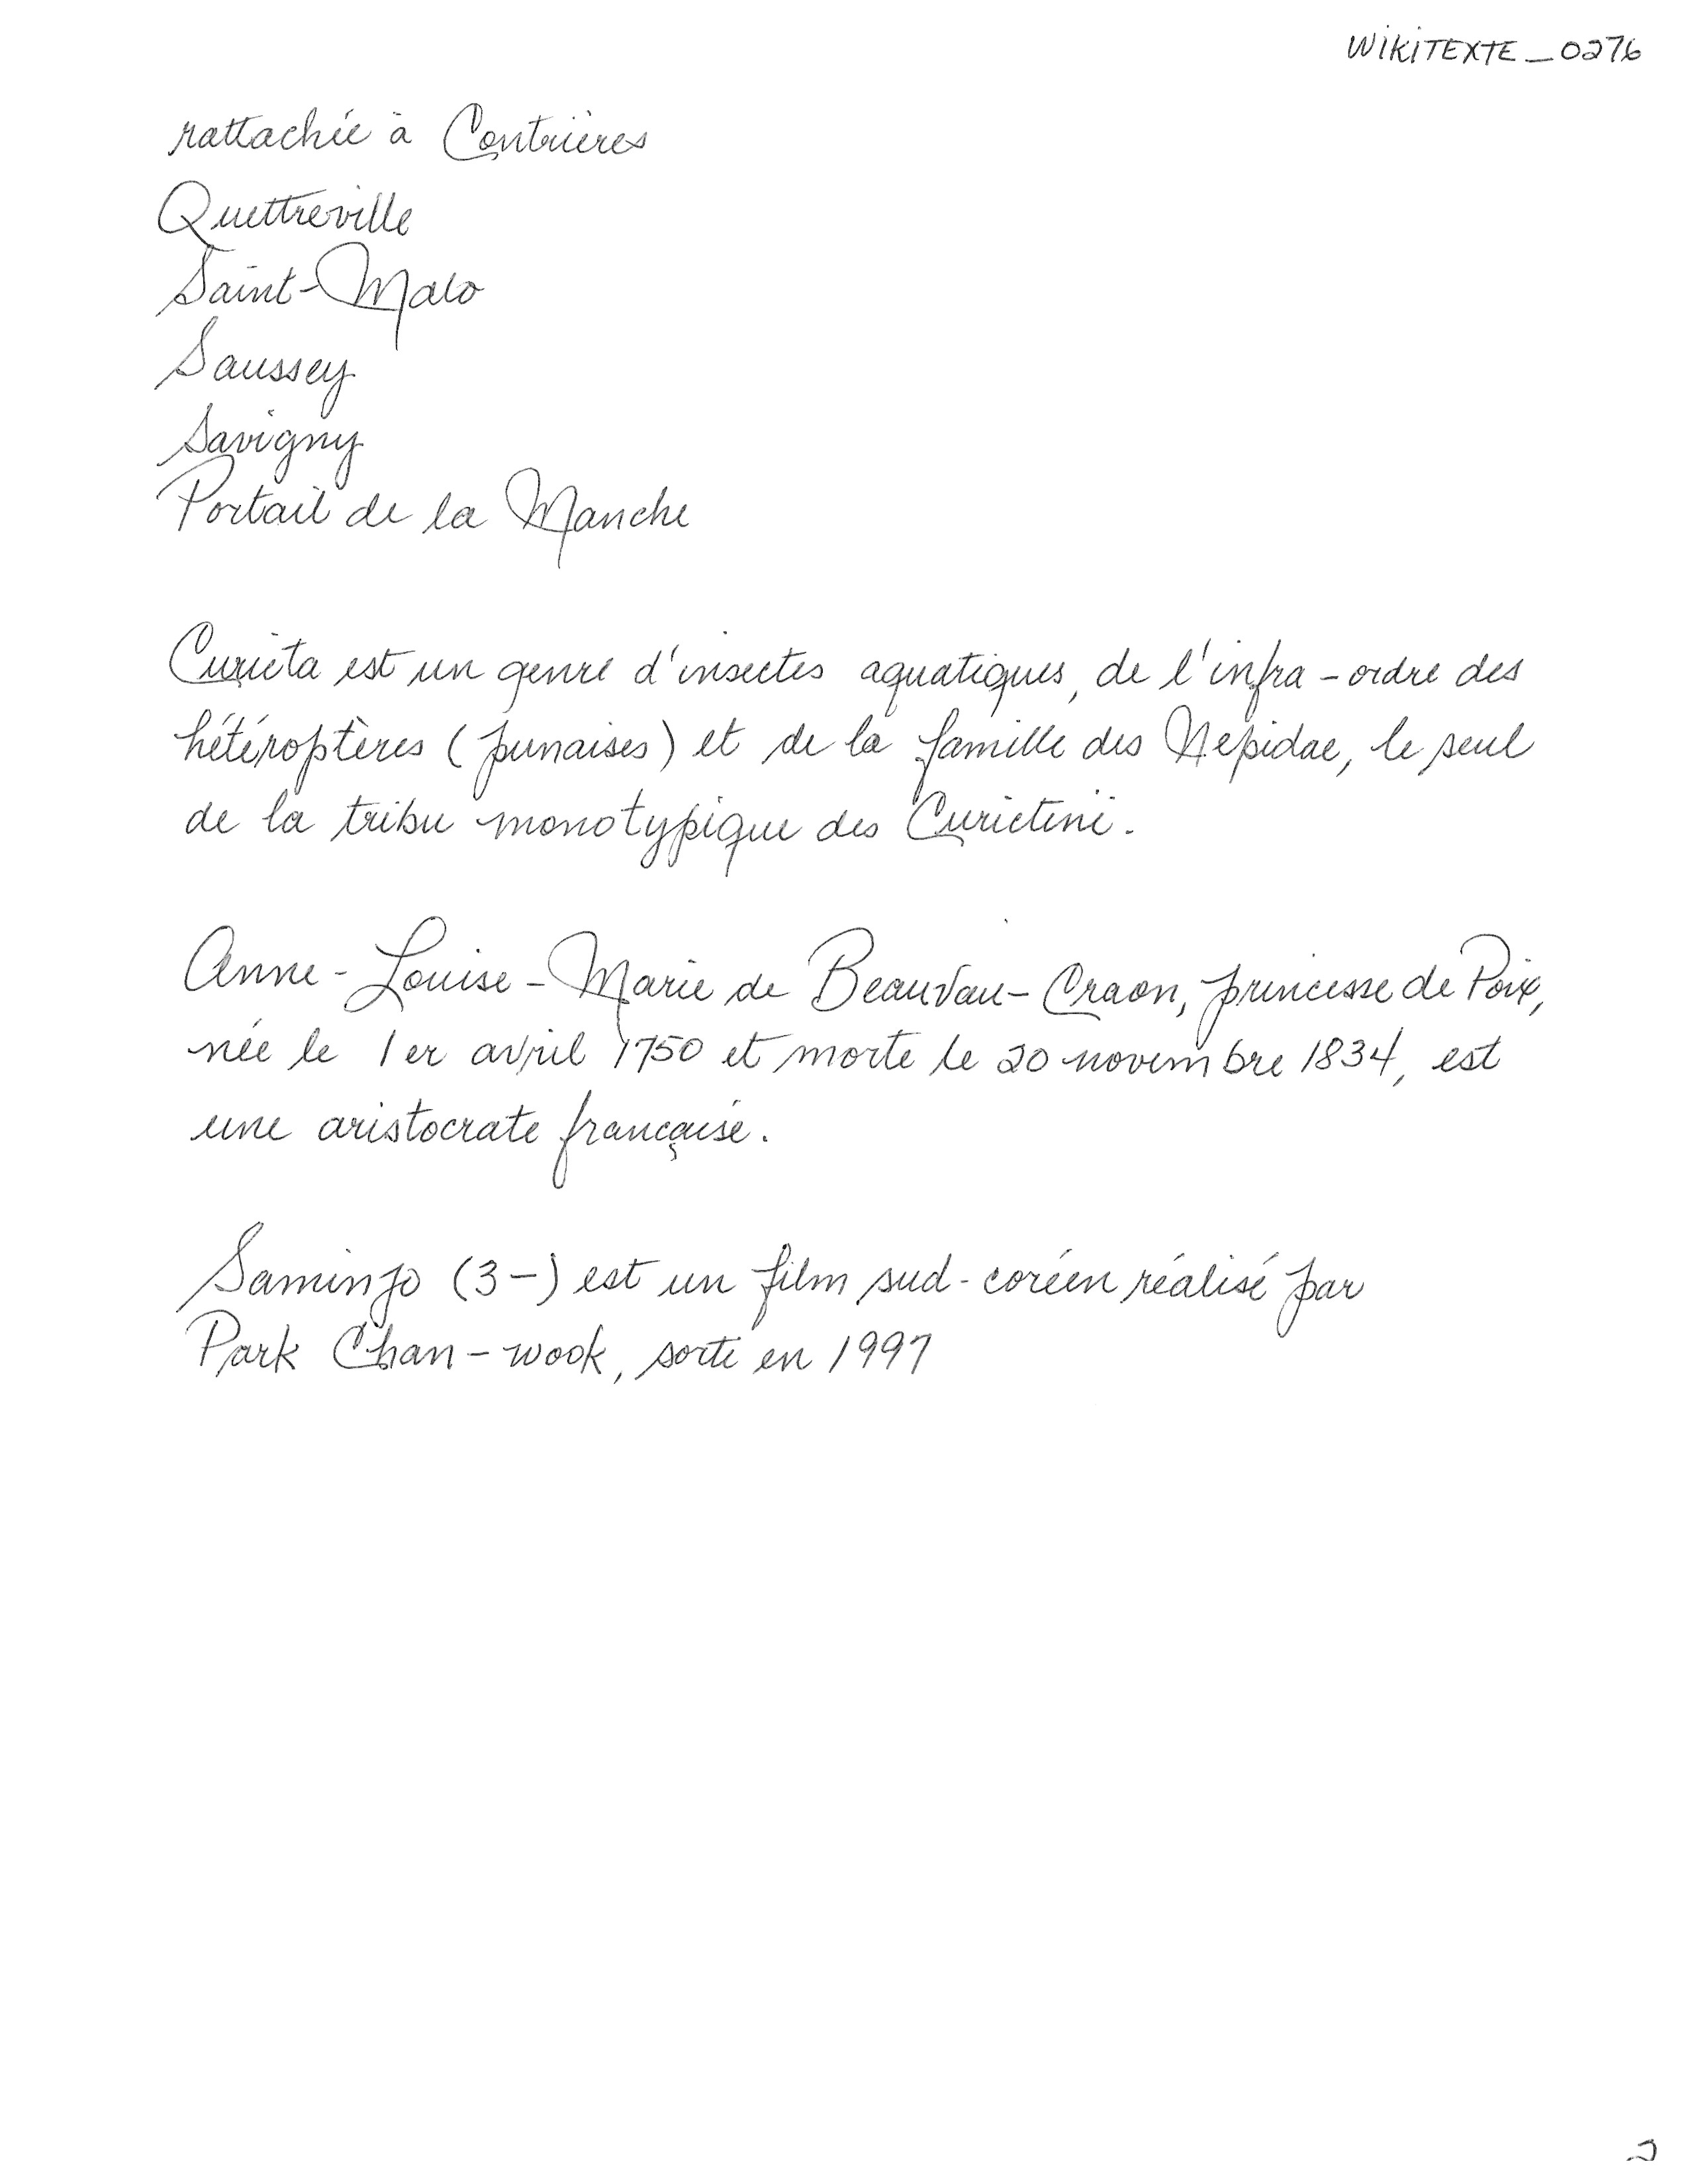 WIKITEXTE_0276
rattachée à Contrières
Quettreville
Saint-Malo
Saussey
Savigny
Portail de la Manche
Curicta est un genre d'insectes aquatiques, de l'infra-ordre des
hétéroptères (punaises) et de la famille des Nepidae, le seul
de la tribu monotypique des Curictini.
Anne-Louise-Marie de Beauvau-Craon, princesse de Poix,
née le 1er avril 1750 et morte le 20 novembre 1834, est
une aristocrate française.
Saminjo (3-) est un film sud-coréen réalisé par
Park Chan-wook, sorti en 1997